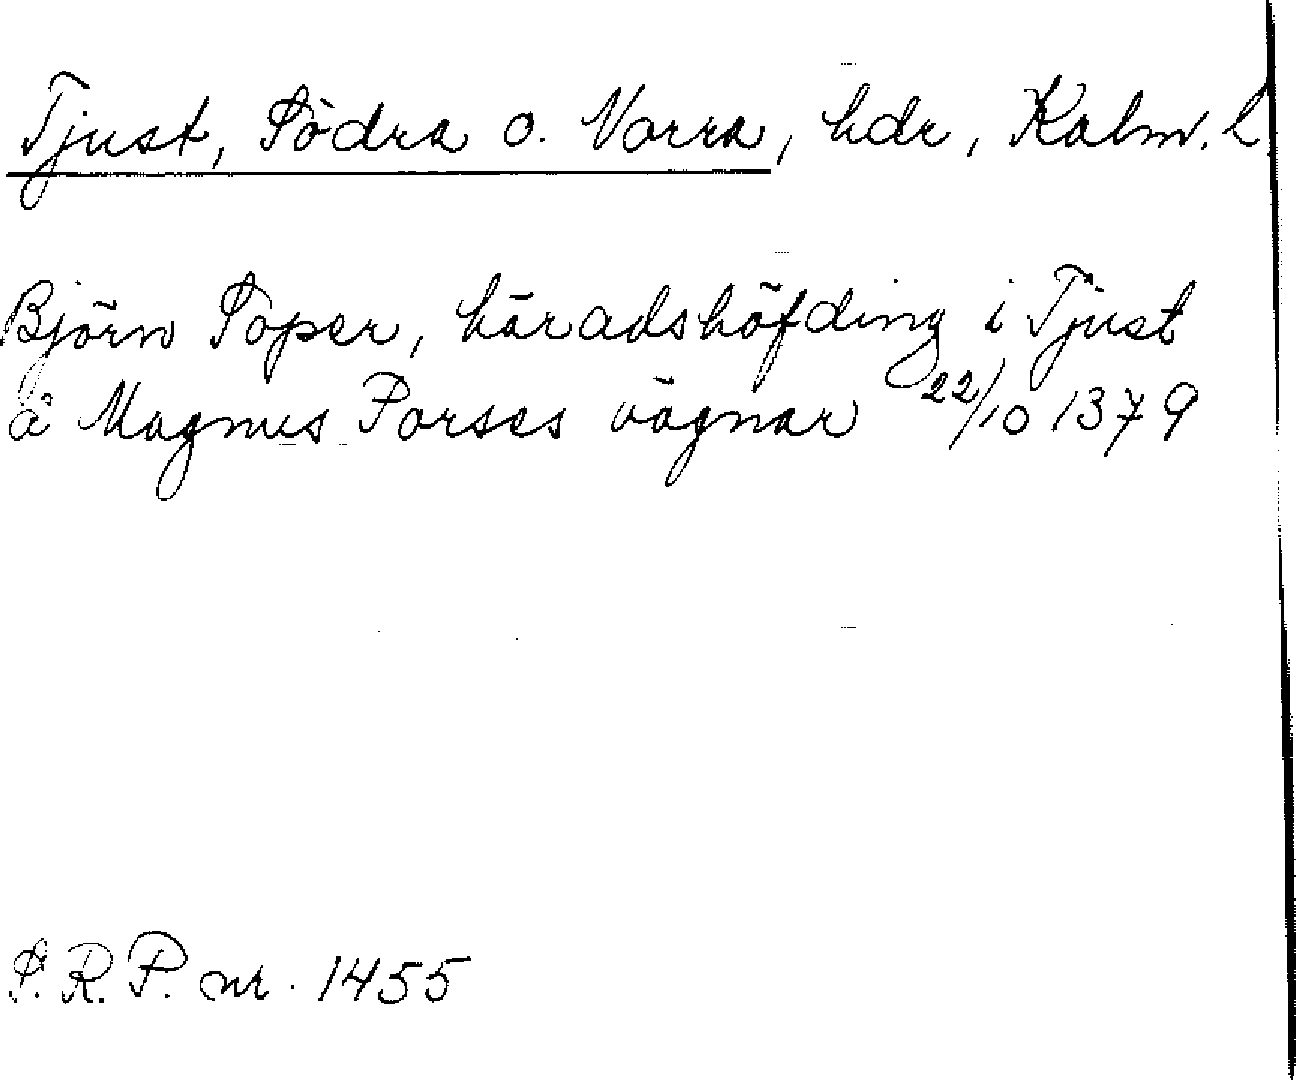 Tjust, Södra o. Norra, hdr, Kalm. l.
Björn Soper, häradshöfding i Tjust
å Magnus Porses vägnar 22/10 1379
S. R. P. nr. 1455